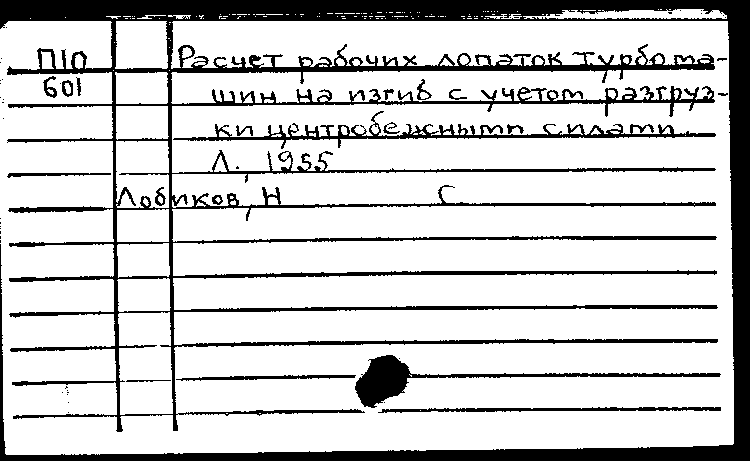 П10 Расчет рабочих лопаток турбома-
601 шин на изгиб с учетом разгруз-
ки центробежными силами.
Л., 1955
Лобиков, Н С.